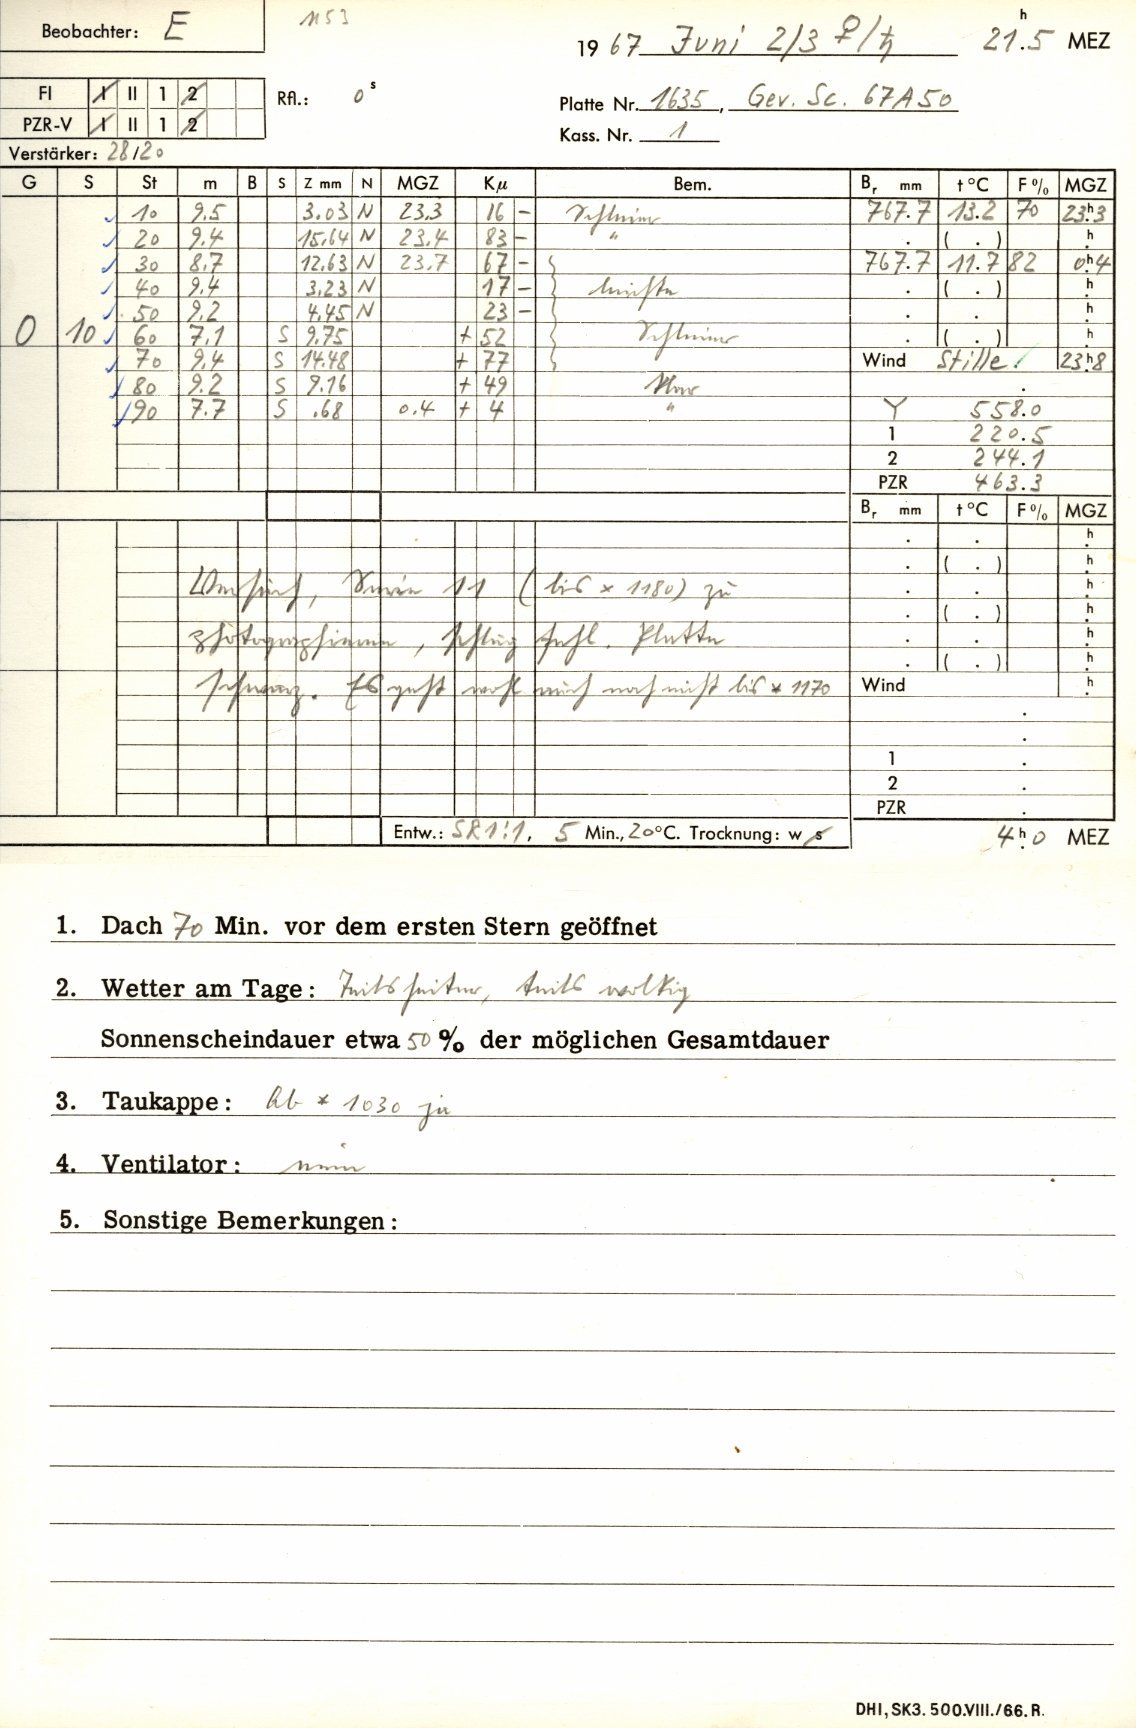 Beobachter: E
1153
19 67 Juni 2/3 ♀/♄ 21.ʰ5 MEZ
FI I II 1 2 Rfl.: 0ˢ
PZR-V I II 1 2
Platte Nr. 1635, Gev. Sc. 67A50
Kass. Nr. 1
Verstärker: 28/20
G S St m B S Z mm N MGZ Kµ Bem. Bᵣ mm t °C F % MGZ
10 9.5 3.03 N 23.3 16 – Schleier 767.7 13.2 70 23.ʰ3
20 9.4 15.64 N 23.4 83 – " . ( . ) ʰ.
30 8.7 12.63 N 23.7 67 – 767.7 11.7 82 0.ʰ4
40 9.4 3.23 N 17 – leichte . ( . ) ʰ.
50 9.2 4.45 N 23 – . . ʰ.
0 10 60 7.1 S 9.75 + 52 Schleier . ( . ) ʰ.
70 9.4 S 14.48 + 77 Wind Stille 23.ʰ8
80 9.2 S 9.16 + 49 klar .
90 7.7 S .68 0.4 + 4 " Y 558.0
1 220.5
2 244.1
PZR 463.3
Bᵣ mm t °C F % MGZ
. . ʰ.
. ( . ) ʰ.
Versuch, Serie 11 (bis * 1180) zu . . ʰ.
. ( . ) ʰ.
photographieren, schlug fehl. Platte . . ʰ.
. ( . ) ʰ.
schwarz. Es geht wohl auch noch nicht bis * 1170 Wind ʰ.
.
.
1 .
2 .
PZR .
Entw.: SR 1:1, 5 Min., 20 °C. Trocknung: w s 4.ʰ0 MEZ
1. Dach 70 Min. vor dem ersten Stern geöffnet
2. Wetter am Tage: Teils heiter, teils wolkig
Sonnenscheindauer etwa 50 % der möglichen Gesamtdauer
3. Taukappe: Ab * 1030 ja
4. Ventilator: nein
5. Sonstige Bemerkungen:
DHI, SK3. 500.VIII./66. R.